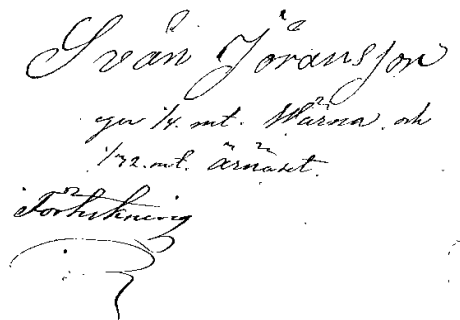 Svän Jöransson
eger 1/4. mt. Wärna. och
1/32. mt. Ärnäset.
Förtekning